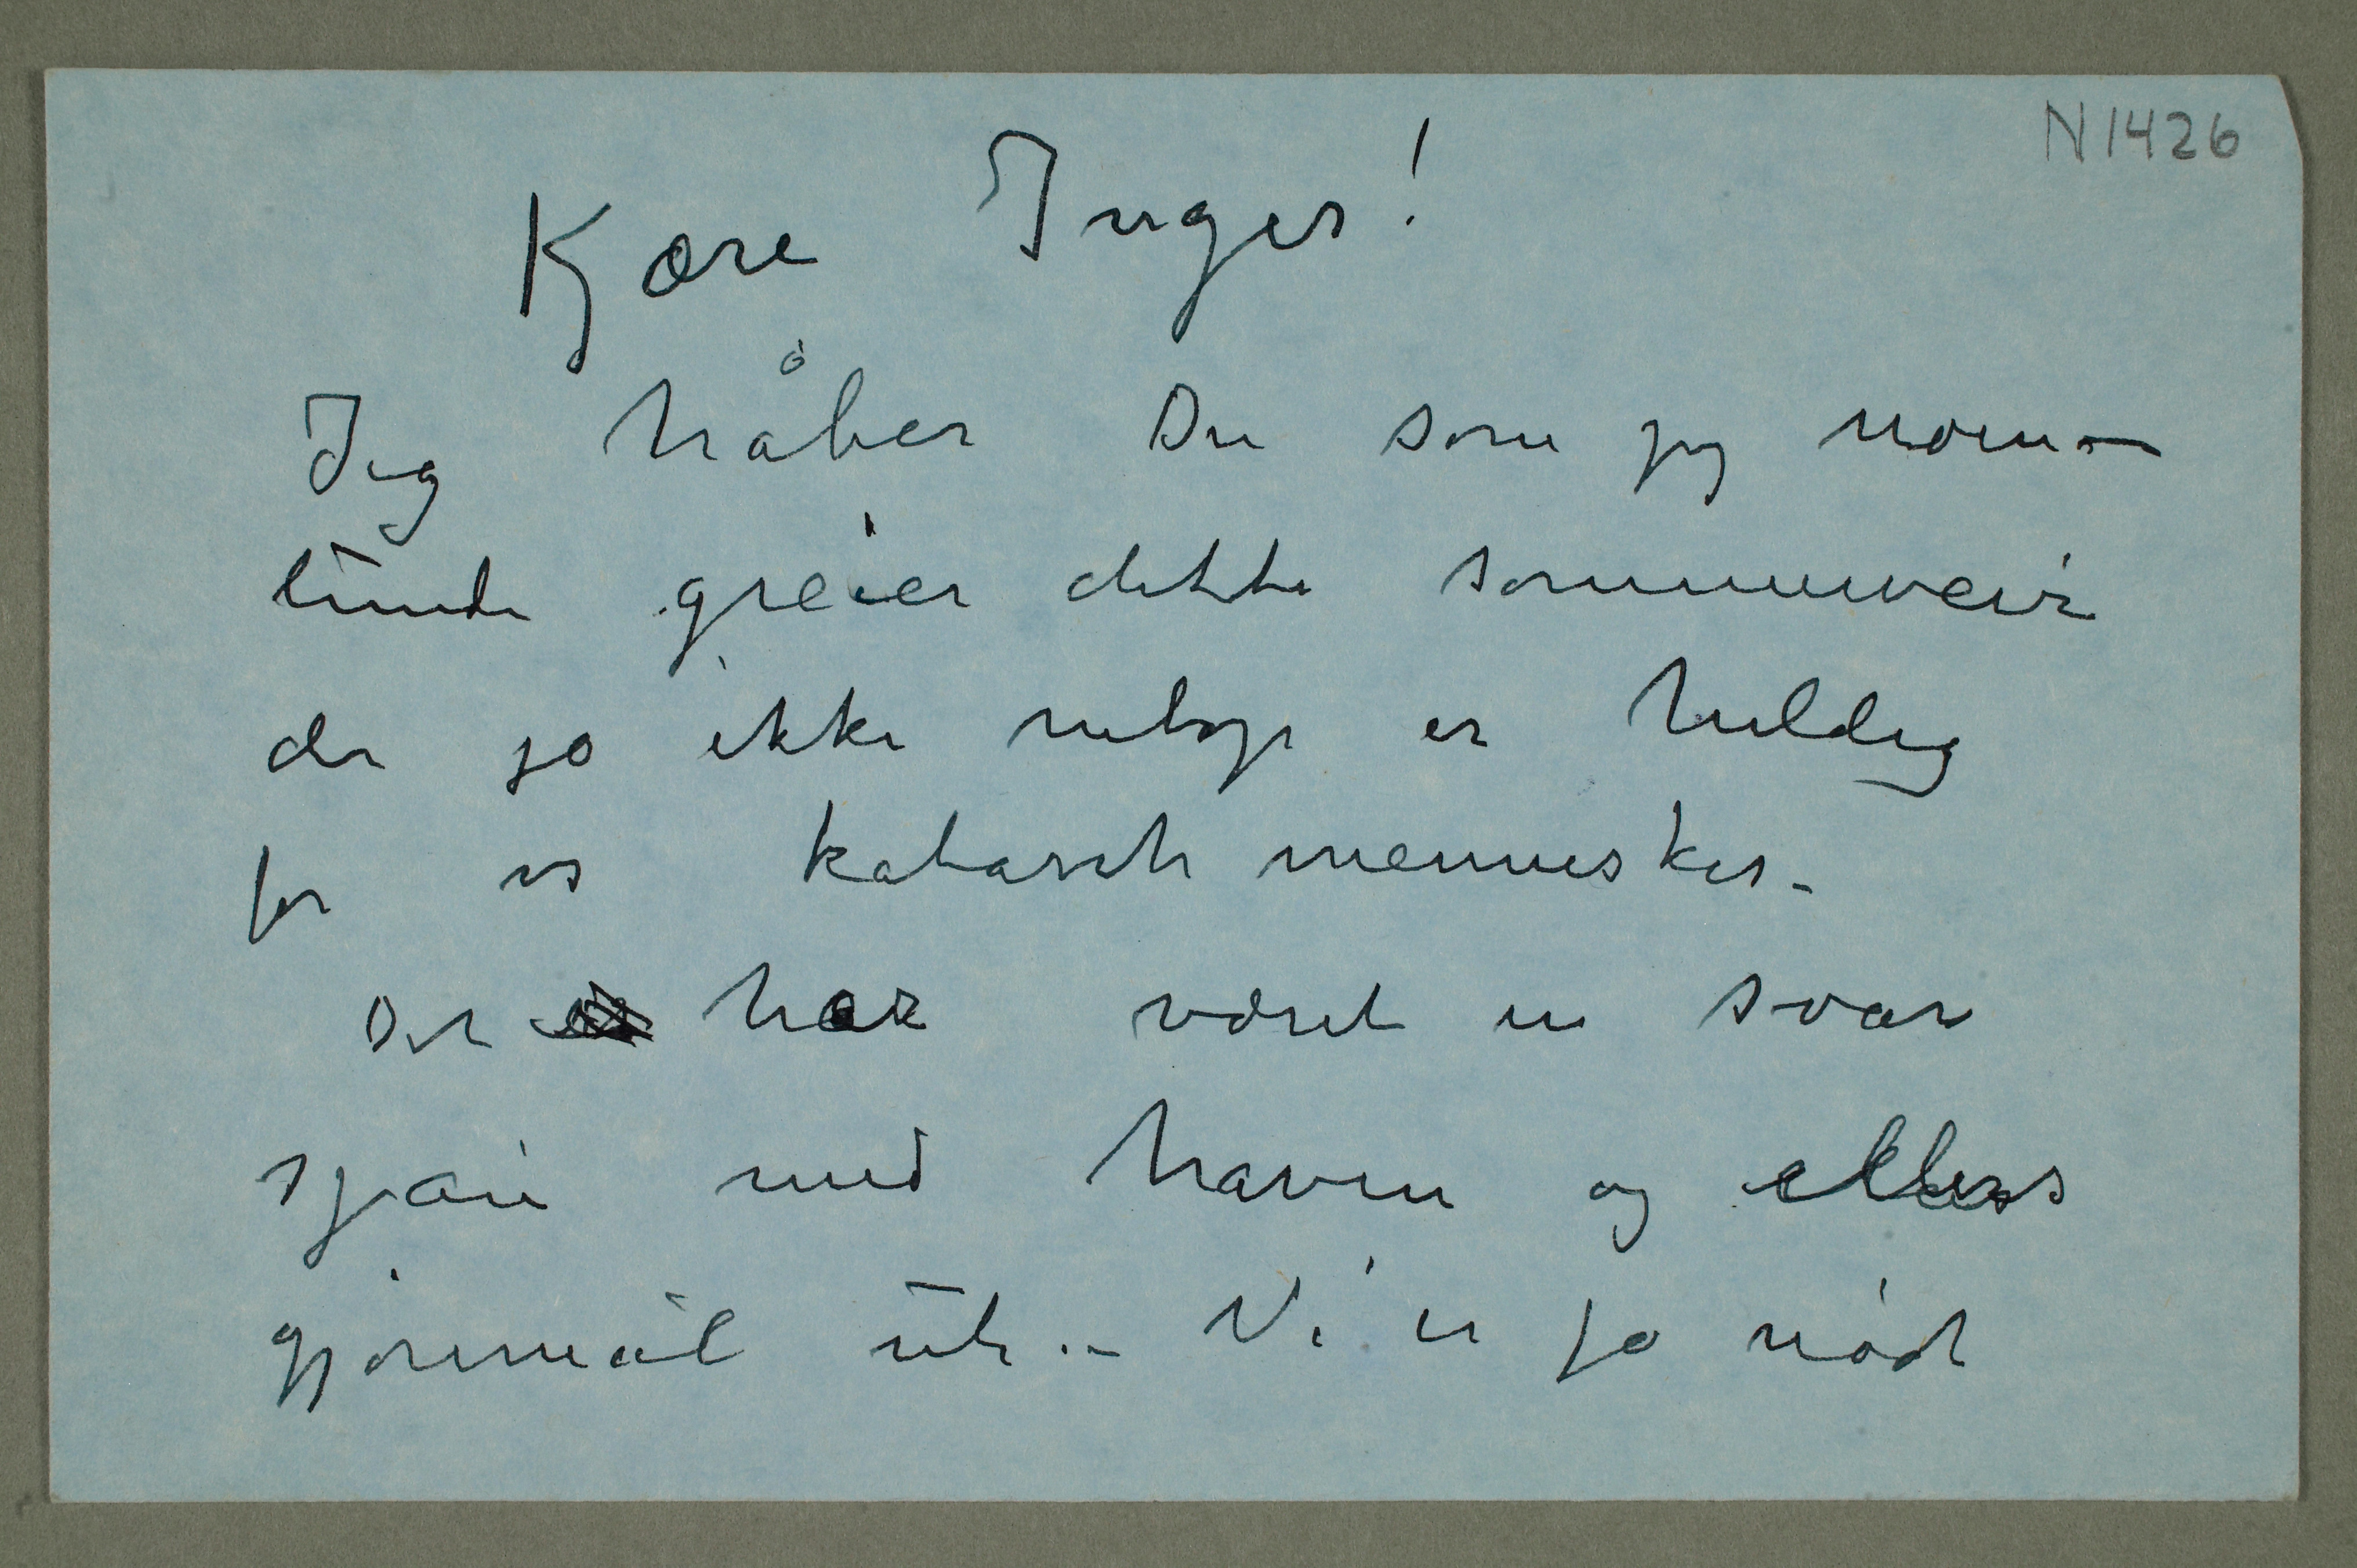 N 1426
Kjære Inger!
Jeg håber Du som jeg noen-
lunde greier dette sommerveir
der jo ikke netop er heldig
for os katarrh mennesker.
Det har været en svær
med haven og ellers
gjøremål ute.– Vi er jo nødt